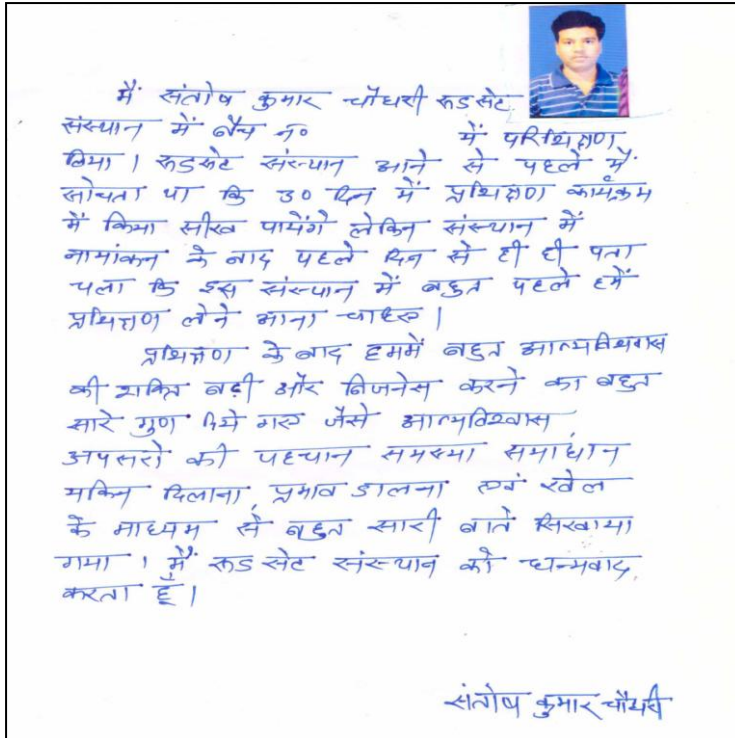 मैं संतोष कुमार चौधरी रूडसेट
संस्थान में बैच नं० में परिशिक्षण
लिया । रूडसेट संस्थान आने से पहले मैं
सोचता था कि 30 दिन में प्रशिक्षण कार्यक्रम
में किया सीख पायेंगे लेकिन संस्थान में
नामांकन के बाद पहले दिन से ही ही पता
चला कि इस संस्थान में बहुत पहले हमें
प्रशिक्षण लेने आना चाहए ।
प्रशिक्षण के बाद हममें बहुत आत्मविश्वास
की शक्ति बढ़ी और बिजनेस करने का बहुत
सारे गुण दिये गए जैसे आत्मविश्वास
अपसरो की पहचान समस्या समाधान
यकिन दिलाना, प्रभाव डालना एवं खेल
के माध्यम से बहुत सारी बाते सिखाया
गया । मैं रूडसेट संस्थान को धन्यवाद
करता हूँ ।
संतोष कुमार चौधरी